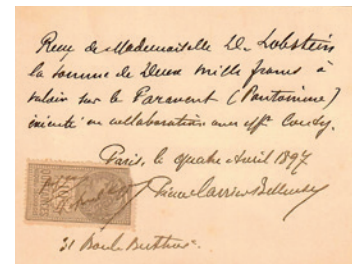 Reçu de Mademoiselle D. Lobstein
la somme de Deux mille francs à
valoir sur le Paravent (Pantomime)
exécuté en collaboration avec Mr
Paris, le quatre Avril 1897
Pierre Carrier Belleuse
31 Boul. Berthier.